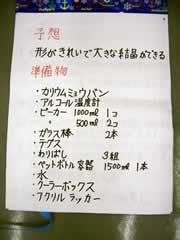 予想
形がきれいで大きな結晶ができる
準備物
・カリウムミョウバン
・アルコール温度計
・ビーカー 1000ml 1コ
・〃 500ml 2コ
・ガラス棒 2本
・テグス
・わりばし 3組
・ペットボトル容器 1500ml 1本
・水
・クーラーボックス
・アクリルラッカー